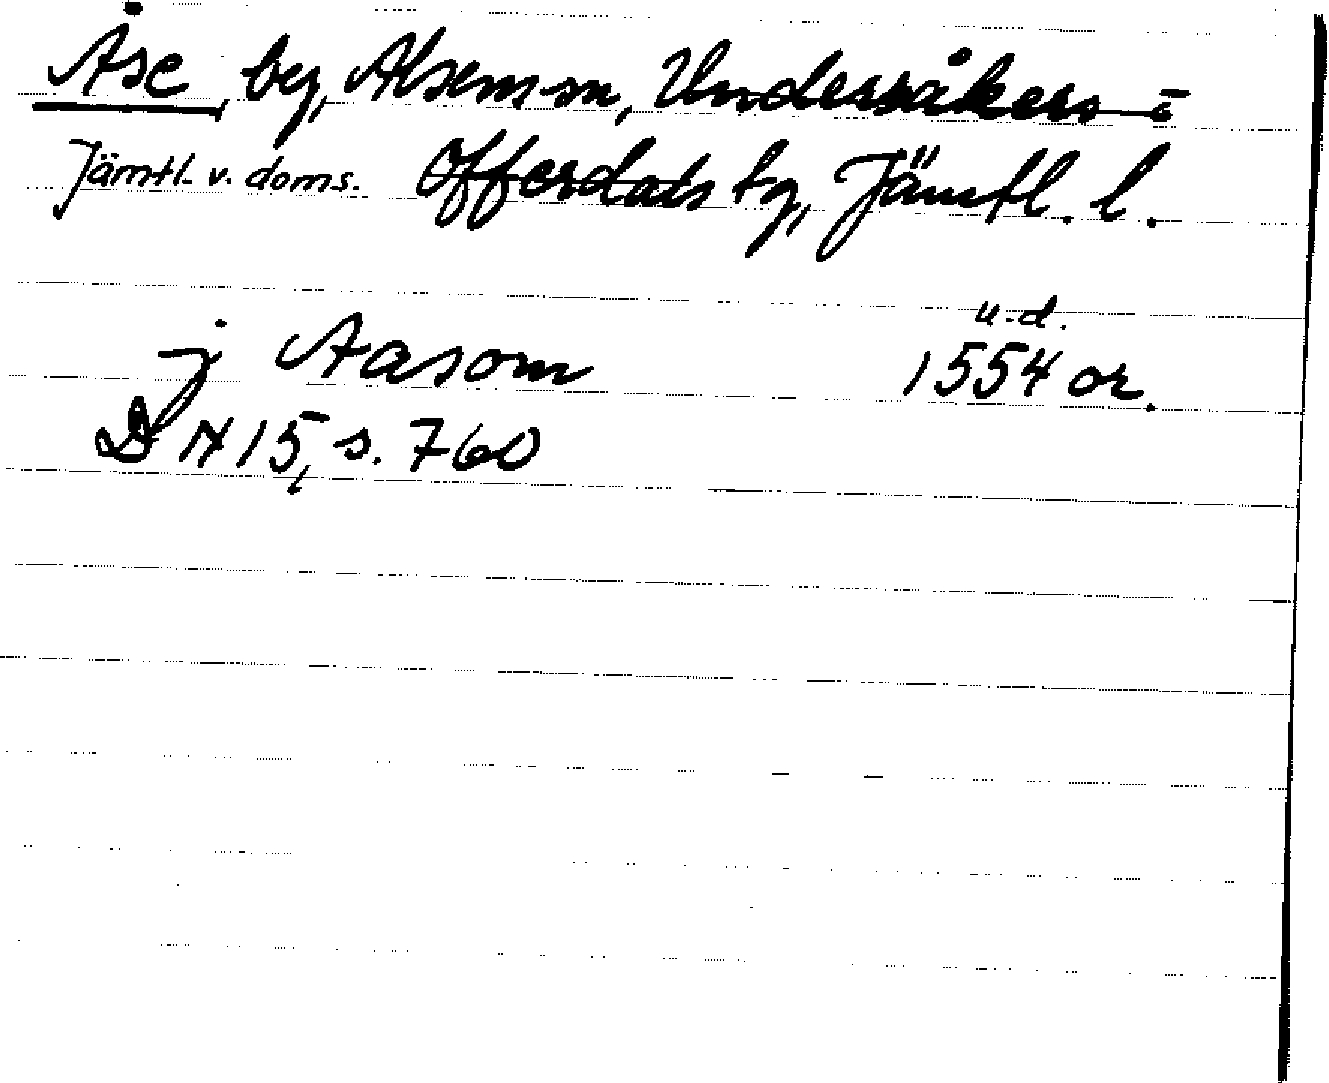 Åse, by, Alsens sn, Undersåkers o
Jämtl. v. doms. Offerdals tg, Jämtl. l.
u.d.
j Aasom 1554 or.
DN 15, s. 760